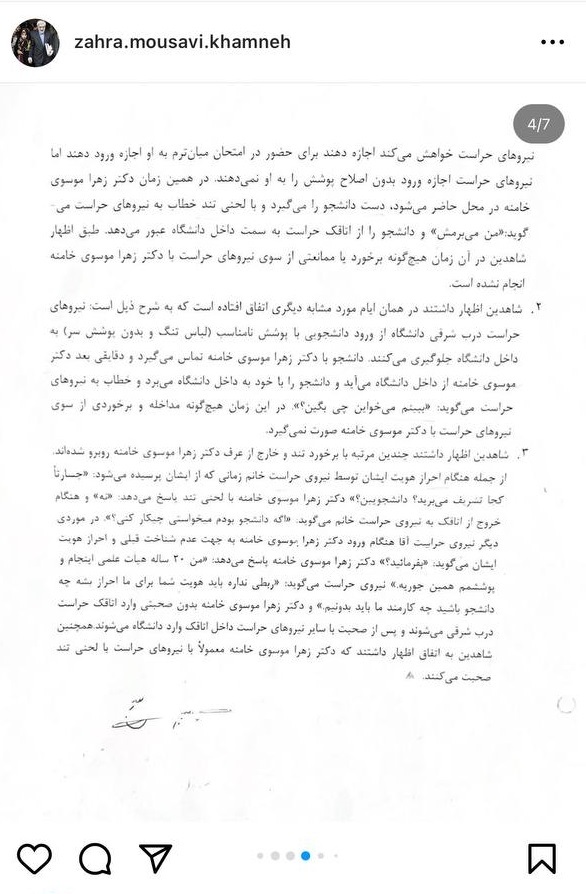 zahra.mousavi.khamneh
4/7
نیروهای حراست خواهش می‌کند اجازه دهند برای حضور در امتحان میان‌ترم به او اجازه ورود دهند اما
نیروهای حراست اجازه ورود بدون اصلاح پوشش را به او نمی‌دهند. در همین زمان دکتر زهرا موسوی
خامنه در محل حاضر می‌شود، دست دانشجو را می‌گیرد و با لحنی تند خطاب به نیروهای حراست می-
گوید:«من می‌برمش» و دانشجو را از اتاقک حراست به سمت داخل دانشگاه عبور می‌دهد. طبق اظهار
شاهدین در آن زمان هیچ‌گونه برخورد یا ممانعتی از سوی نیروهای حراست با دکتر زهرا موسوی خامنه
انجام نشده است.
۲. شاهدین اظهار داشتند در همان ایام مورد مشابه دیگری اتفاق افتاده است که به شرح ذیل است: نیروهای
حراست درب شرقی دانشگاه از ورود دانشجویی با پوشش نامناسب (لباس تنگ و بدون پوشش سر) به
داخل دانشگاه جلوگیری می‌کنند. دانشجو با دکتر زهرا موسوی خامنه تماس می‌گیرد و دقایقی بعد دکتر
موسوی خامنه از داخل دانشگاه می‌آید و دانشجو را با خود به داخل دانشگاه می‌برد و خطاب به نیروهای
حراست می‌گوید: «ببینم می‌خواین چی بگین؟». در این زمان هیچ‌گونه مداخله و برخوردی از سوی
نیروهای حراست با دکتر موسوی خامنه صورت نمی‌گیرد.
۳. شاهدین اظهار داشتند چندین مرتبه با برخورد تند و خارج از عرف دکتر زهرا موسوی خامنه روبرو شده‌اند.
از جمله هنگام احراز هویت ایشان توسط نیروی حراست خانم زمانی که از ایشان پرسیده می‌شود: «جسارتاً
کجا تشریف می‌برید؟ دانشجویین؟» دکتر زهرا موسوی خامنه با لحنی تند پاسخ می‌دهد: «نه» و هنگام
خروج از اتاقک به نیروی حراست خانم می‌گوید. «اگه دانشجو بودم میخواستی چیکار کنی؟». در موردی
دیگر نیروی حراست آقا هنگام ورود دکتر زهرا موسوی خامنه به جهت عدم شناخت قبلی و احراز هویت
ایشان می‌گوید: «بفرمائید؟» دکتر زهرا موسوی خامنه پاسخ می‌دهد: «من ۲۰ ساله هیات علمی اینجام و
پوششمم همین جوریه.» نیروی حراست می‌گوید: «ربطی نداره باید هویت شما برای ما احراز بشه چه
دانشجو باشید چه کارمند ما باید بدونیم.» و دکتر زهرا موسوی خامنه بدون صحبتی وارد اتاقک حراست
درب شرقی می‌شوند و پس از صحبت با سایر نیروهای حراست داخل اتاقک وارد دانشگاه می‌شوند.همچنین
شاهدین به اتفاق اظهار داشتند که دکتر زهرا موسوی خامنه معمولاً با نیروهای حراست با لحنی تند
صحبت می‌کنند.